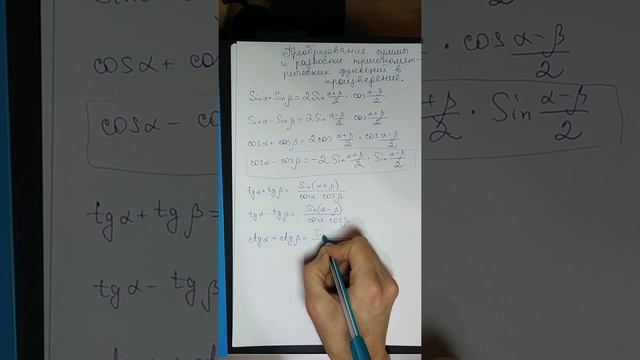 Преобразование суммы
и разности тригономет-
рических функций в
произведение.
Sinα+Sinβ = 2Sin (α+β)/2 cos (α-β)/2
Sinα - Sinβ = 2Sin (α-β)/2 cos (α+β)/2
cosα + cosβ = 2cos (α+β)/2 · cos (α-β)/2
cosα - cosβ = -2 Sin (α+β)/2 · Sin (α-β)/2
tgα + tgβ = Sin(α+β)/(cosα·cosβ)
tgα - tgβ = Sin(α-β)/(cosα·cosβ)
ctgα + ctgβ = Si